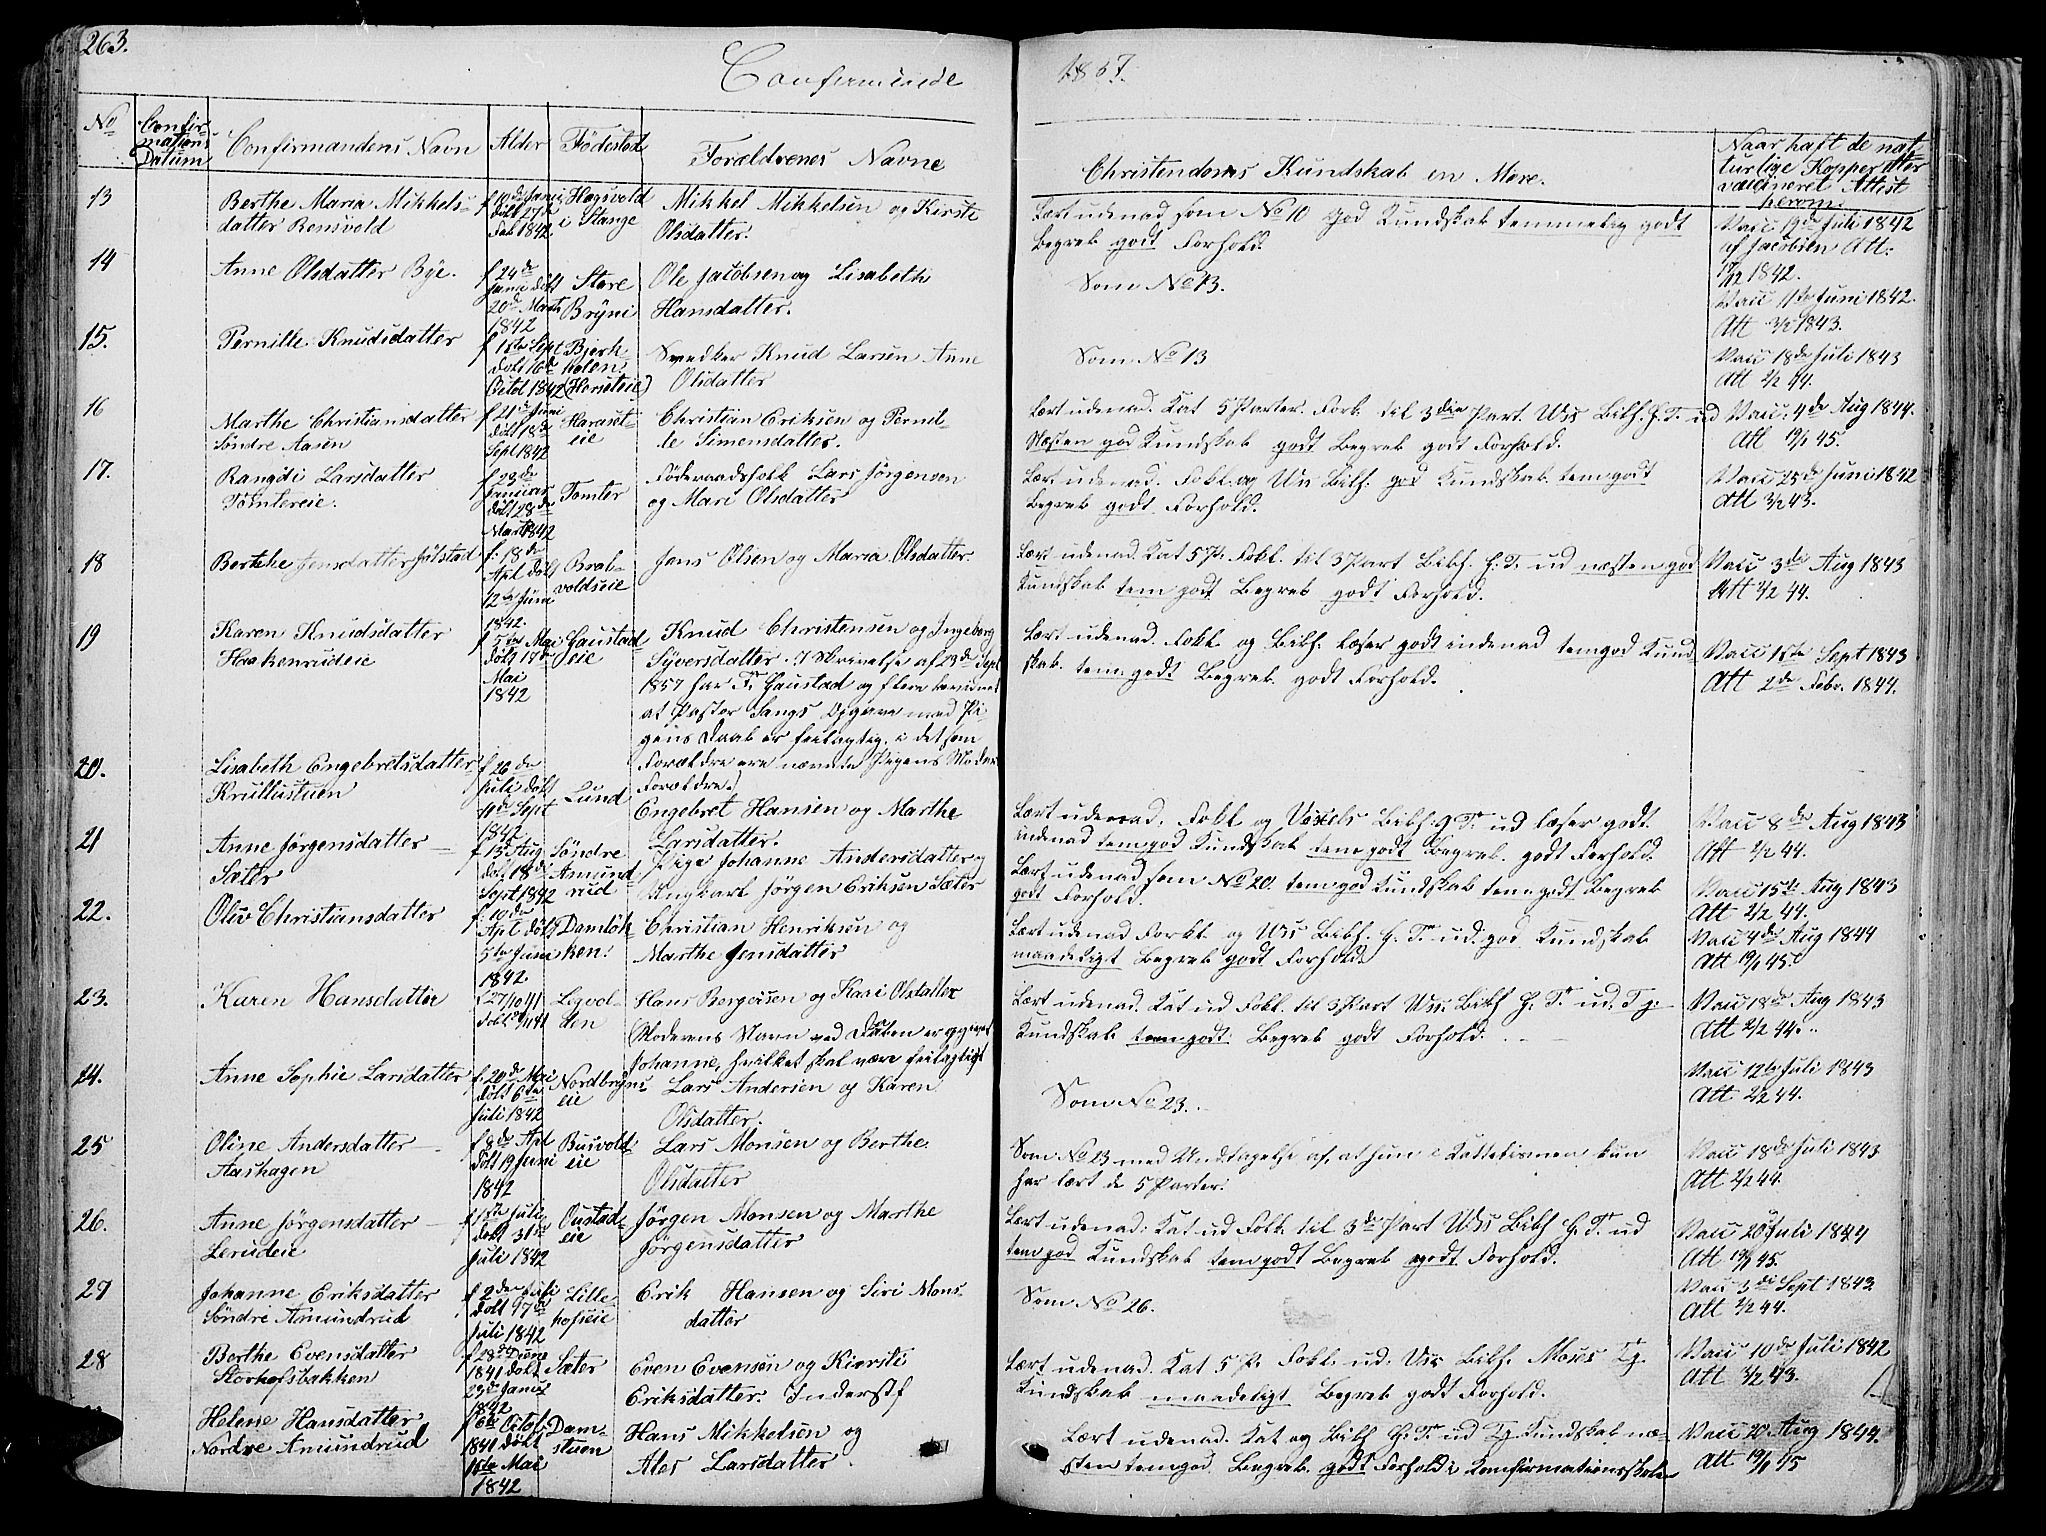 263.
Confirmerede
1857.
No
Confir-
mations
Datum
Confirmandens Navn
Alder
Födested
Forældrenes Navne
Christendoms Kundskab en Mere.
Naar haft de nat-
turlige Kopper eller
vaccineret Attest
herom.
13
Berthe Maria Mikkels-
datter Rensvold
f 10de Janr
döbt 27de
Feb 1842.
Hagsvold
i Stange
Mikkel Mikkelsen og Kirsti
Olsdatter.
Lært udenad som No 10 God Kundskab temmelig godt
Begreb godt Forhold.
Vacc 19de Juli 1842
af Jacobsen Att:
17/12 1842.
14
Anne Olsdatter Bye.
f 24de
Janr döbt
20de Marts
1842
Store
Bryni
Ole Jacobsen og Lisabeth
Hansdatter.
Som No 13.
Vacc 11te Juni 1842.
Att 3/2 1843.
15.
Pernille Knudsdatter
f 1ste Sept
döbt 16de
Octob 1842
Bjerk-
holen
(Horseteie)
Svedker Knud Larsen Anne
Olsdatter
Som No 13
Vacc 18de Juli 1843
Att 2/2 44.
16
Marthe Christiansdatter
Söndre Aasen
f 21de Juni
döbt 18de
Sept 1842
Haraset-
eie
Christian Eriksen og Pernil-
le Simensdatter.
Lært udenad. Kat 5 Parter. Fork. til 3die Part. Vss Bibh. H. T. ud
Næsten god Kundskab godt Begreb godt Forhold.
Vacc. 4de Aug 1844.
Att 19/1 45.
17.
Rangdi Larsdatter
Tomtereie.
f 23de
Januar
döbt 28de
Marts 1842
Tomter
Föderaadsfolk Lars Jörgensen
og Mari Olsdatter
Lært udenad. Fokl. og Vss Bibh. god Kundskab. temgodt
Begreb godt Forhold.
Vacc 25de Juni 1842
Att 3/2 43.
18
Berthe Jensdatter Jölstad
f. 18de
Apl döbt
12te Juni
1842.
Brab-
voldseie
Jens Olsen og Maria Olsdatter.
Lært udenad. Kat 5 P. Fokl. til 3 Part Bibh. H. T. ud næsten god
Kundskab temgodt Begreb godt Forhold.
Vacc 3die Aug 1843
Att 2/2 44.
19
Karen Knudsdatter
Haakenrudeie
f 5te Mai
döbt 17de
Mai
1842
Gaustad
eie
Knud Christensen og Ingeborg
Syversdatter. (I Skrivelse af 23de Sept
1857 har T. Gaustad og flere bevidnet
at Pastor Sangs Opgave med Pi-
gens Daab er feilagtig, i det som
Forældre ere nævnte Pigens Moder
Forældre.)
Lært udenad. Fokl. og Bibh. læser godt indenad temgod Kund-
skab. temgodt Begreb godt Forhold.
Vacc 15te Sept 1843
Att 2de Febr. 1844.
20.
Lisabeth Engebretsdatter
Krullustuen
f 26de
Juli döbt
11de Sept
1842
Lund
Engebret Hansen og Marthe
Larsdatter.
Lært udenad. Fokl. og Vosiels Bibh. H. T. ud læser godt
indenad temgod Kundskab temgodt Begreb. godt Forhold.
Vacc 8de Aug 1843
Att 2/2 44.
21
Anne Jörgensdatter
Sæter
f 13de Aug
döbt 18de
Sept 1842
Söndre
Amund-
rud
Pige Johanne Andersdatter og
Ungkarl Jörgen Eriksen Sæter
Lært udenad som No 20. temgod Kundskab temgodt Begreb
godt Forhold.
Vacc 15de Aug 1843
Att 2/2 44.
22.
Oliv Christiansdatter
f. 10de
Apl döbt
5te Juni
1842.
Damlök-
ken.
Christian Henriksen og
Marthe Jensdatter
Lært udenad Forkl. og Vss Bibh. H. T. ud. god Kundskab
maadeligt Begreb godt Forhold.
Vacc 4de Aug 1844
Att 19/1 45.
23.
Karen Hansdatter
f 27/10 41
döbt 41
Legvol-
den
Hans Borgersen og Kari Olsdatter
Moderens Navn ved Daaben er opgivet
Johanne, hvilket skal være feilagtigt
Lært udenad. Kat ud Fokl. til 3 Part Vss. Bibh H. T. ud. Tg.
Kundskab temgodt Begreb godt Forhold.
Vacc 18de Aug 1843
Att 2/2 44.
24.
Anne Sophie Larsdatter
f. 20de Mai
döbt 6te
Juli 1842
Nordbryns-
eie
Lars Andersen og Karen
Olsdatter.
Som No 23.
Vacc 12te Juli 1843
Att 2/2 44.
25
Oline Andersdatter
Aashagen
f 8de Apl
döbt 19 Juni
1842
Busvold-
eie
Lars Monsen og Berthe
Olsdatter
Som No 23 med Undtagelse af, at hun i Kattekismen kun
har lært de 5 Parter.
Vacc 18de Juli 1843
Att 2/2 44.
26.
Anne Jörgensdatter
Lerudeie
f 1ste Juli
döbt 31te
Juli 1842
Oustad-
eie
Jörgen Monsen og Marthe
Jörgensdatter
Lært udenad. Kat ud Fokl. til 3die Part Vss Bibh H. T. ud
temgod Kundskab temgodt Begreb godt Forhold.
Vacc 20de Juli 1844
Att 19/1 45.
27
Johanne Eriksdatter
Söndre Amundrud
f 2den Juli
döbt 17de
Juli 1842
Lille-
hofseie
Erik Hansen og Siri Mons-
datter
Som No 26.
Vacc 3die Sept 1843
Att 2/2 44.
28
Berthe Evensdatter
Storhofsbakken
f 28de Decbr
1841 döbt
23de Janr
1842
Sæter
Even Evensen og Kiersti
Eriksdatter. Inderstf
Lært udenad. Kat 5 P. Fokl. ud. Vss Bibh. Moses Tg.
Kundskab maadeligt Begreb godt Forhold.
Vacc 10de Juli 1842
Att 3/2 43.
Helene Hansdatter
Nordre Amundrud
f 6te Octob
1841 döbt
16te Mai
1842
Dam-
stuen
Hans Mikkelsen og
Ales Larsdatter.
Lært udenad. Kat og Bibh H. T. ud Tg Kundskab næ-
sten temgod Begreb. godt Forhold i Konfirmationsskolen
Vacc 20 Aug 1844.
Att 19/1 45